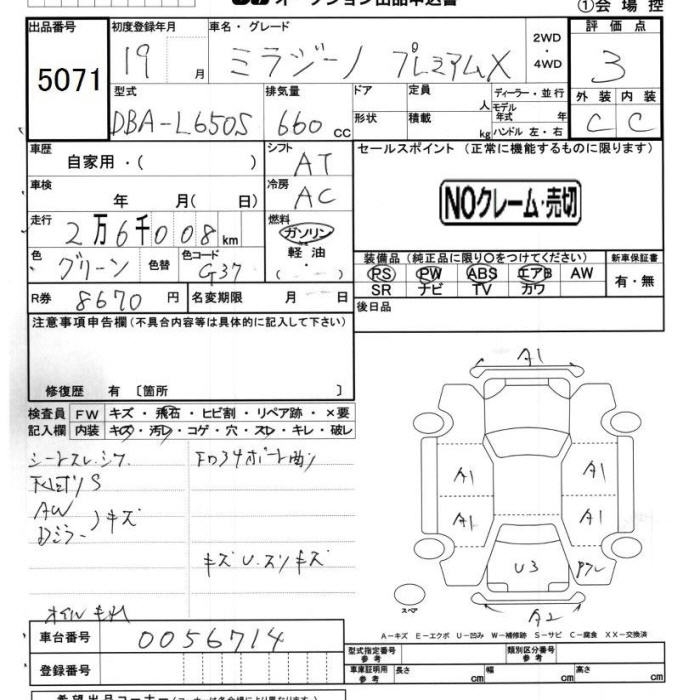 オークション出品申込書
①会場控
出品番号 5071
初度登録年月 19 月
車名・グレード ミラジーノ プレミアムX
2WD・4WD
評価点 3
型式 DBA-L650S
排気量 660 cc
ドア 形状
定員 人
積載 kg
ディーラー・並行
モデル年式 年
ハンドル 左・右
外装 C
内装 C
車歴 自家用・( )
シフト AT
セールスポイント(正常に機能するものに限ります)
NOクレーム・売切
車検 年 月( 日)
冷房 AC
走行 2万6千008km
燃料 ガソリン 軽油 ・( )
色 グリーン 色替
色コード G37
装備品(純正品に限り○をつけてください)
PS PW ABS エアB AW
SR ナビ TV カワ
新車保証書 有・無
R券 8670円
名変期限 月 日
後日品
注意事項申告欄(不具合内容等は具体的に記入して下さい)
修復歴 有〔箇所 〕
検査員記入欄
FW キズ・飛石・ヒビ割・リペア跡・×要
内装 キズ・汚レ・コゲ・穴・スレ・キレ・破レ
シートスレ.シワ
AW
Dミラー)キズ
キズ U.スリキズ
A1
A1 A1
A1 A1
U3
A2
スペア
A-キズ E-エクボ U-凹み W-補修跡 S-サビ C-腐食 XX-交換済
車台番号 0056714
登録番号
型式指定番号 参考
類別区分番号 参考
車庫証明用 参考
長さ cm 幅 cm 高さ cm
希望出品コーナー(コーナーは各会場により異なります)